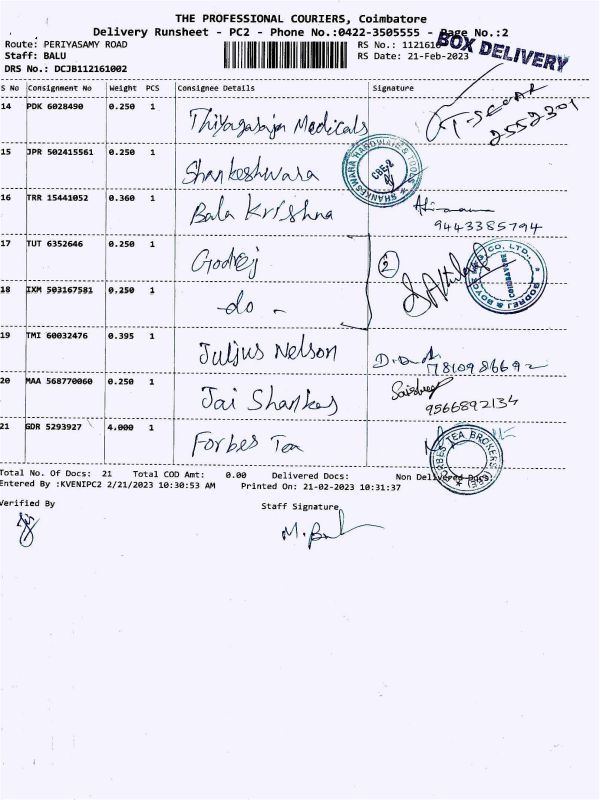 THE PROFESSIONAL COURIERS, Coimbatore
Delivery Runsheet - PC2 - Phone No.:0422-3505555 - Page No.:2
Route: PERIYASAMY ROAD RS No.: 1121610
BOX DELIVERY
Staff: BALU RS Date: 21-Feb-2023
DRS No.: DCJB112161002
S No Consignment No Weight PCS Consignee Details Signature
14 PDK 6028490 0.250 1 Thiyagaraja Medicals T-SEGAR
2552301
15 JPR 502415561 0.250 1 Shankeshwara SHANKESHWARA HARDWARE & TOOLS CBE-2
16 TRR 15441052 0.360 1 Bala Krishna
9443385794
17 TUT 6352646 0.250 1 Godrej 2 GODREJ & BOYCE MFG CO. LTD., COIMBATORE
18 IXM 503167581 0.250 1 -do-
19 TMI 60032476 0.395 1 Julius Nelson
7810986692
20 MAA 568770060 0.250 1 Jai Shankar
9566892134
21 GDR 5293927 4.000 1 Forbes Tea FORBES TEA BROKERS
Total No. Of Docs: 21 Total COD Amt: 0.00 Delivered Docs: Non Delivered Docs:
Entered By :KVENIPC2 2/21/2023 10:30:53 AM Printed On: 21-02-2023 10:31:37
Verified By Staff Signature